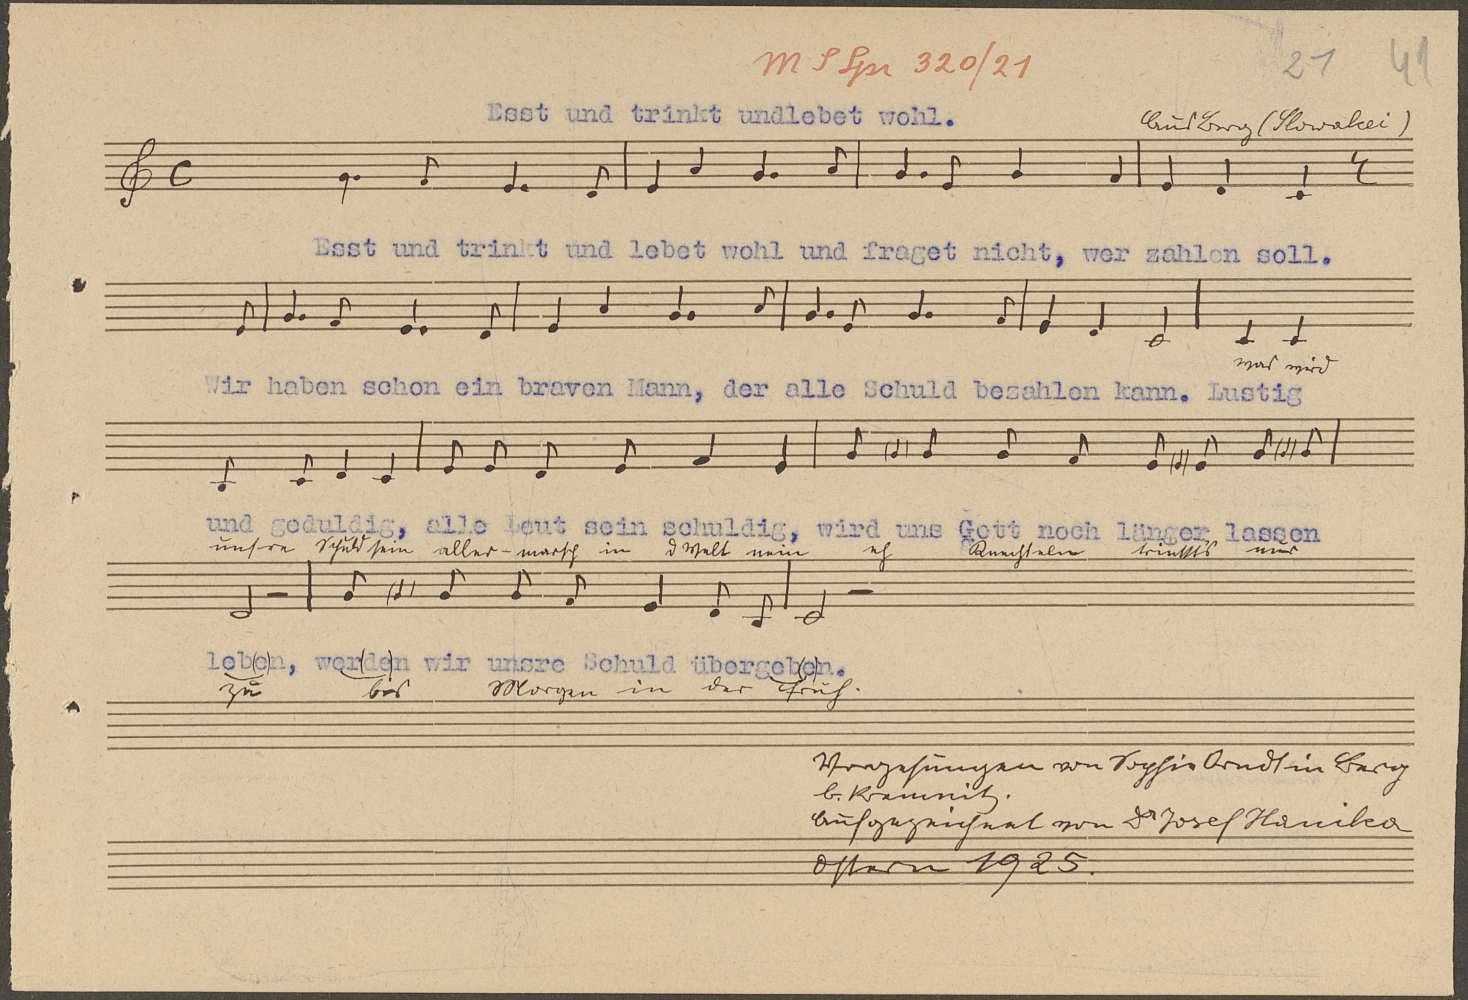 M S Spr 320/21
21 41
Esst und trinkt undlebet wohl.
Aus Berg (Slowakei)
Esst und trinkt und lebet wohl und fraget nicht, wer zahlen soll.
was wird
Wir haben schon ein braven Mann, der alle Schuld bezahlen kann. Lustig
und geduldig, alle Leut sein schuldig, wird uns Gott noch länger lassen
unsre Schuld sein aller-marsch in d Welt nein eh trinkts
leb(e)n, wer(de)n wir unsre Schuld übergeb(e)n.
zu bis Morgen in der Fruh.
Vorgesungen von Sophie Arndt in Berg
b. Kremnitz.
Aufgezeichnet von Dr Josef Hanika
Ostern 1925.